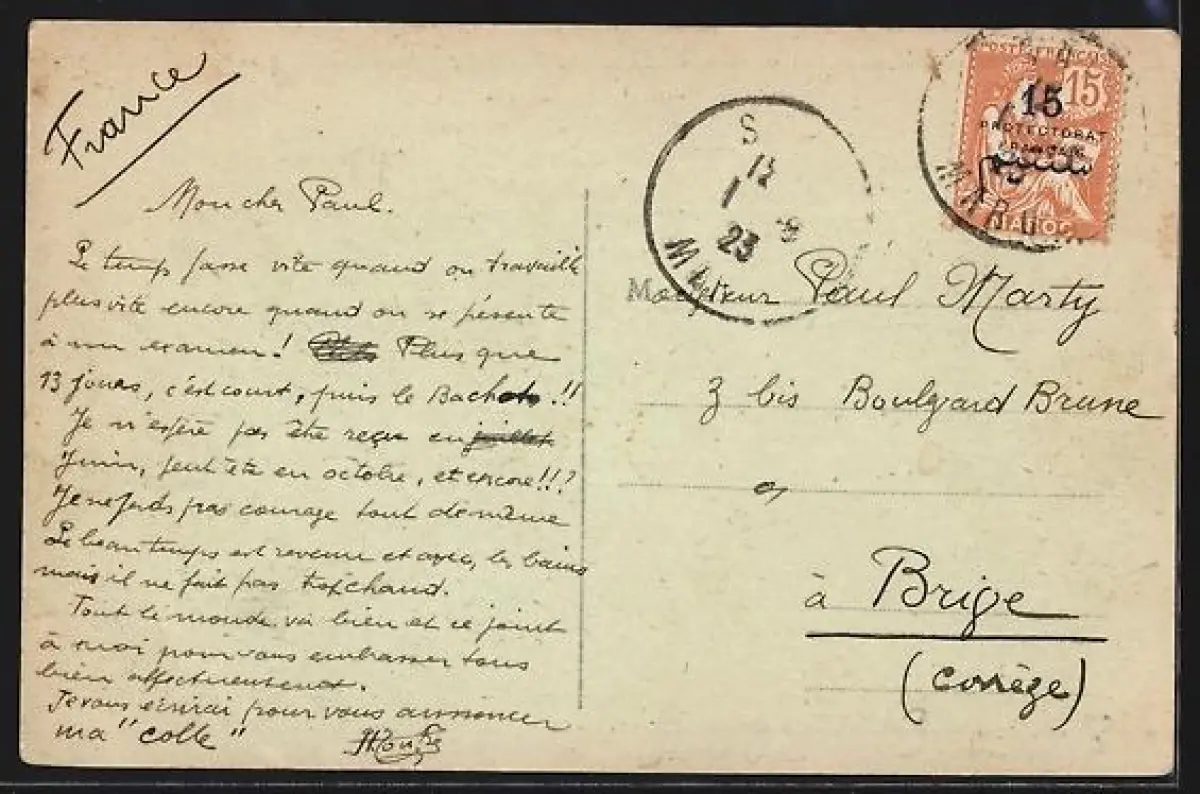 France
Mon cher Paul.
Le temps passe vite quand on travaille
plus vite encore quand on se présente
à un examen! Plus que
13 jours, c'est court, puis le Bachot!!
Je n'espère pas être reçu en juillet
Juin, peut être en octobre, et encore!!?
Je ne perds pas courage tout de même
Le beau temps est revenu et avec, les bains
mais il ne fait pas trop chaud.
Tout le monde va bien et se joint
à moi pour vous embrasser tous
bien affectueusement.
Je vous écrirai pour vous annoncer
ma "colle"
POSTE FRANÇAISE
15
15
PROTECTORAT
FRANÇAIS
MAROC
MARO
S
12
1
23
Monsieur Paul Marty
3 bis Boulevard Brune
à Brive
(Corrèze)